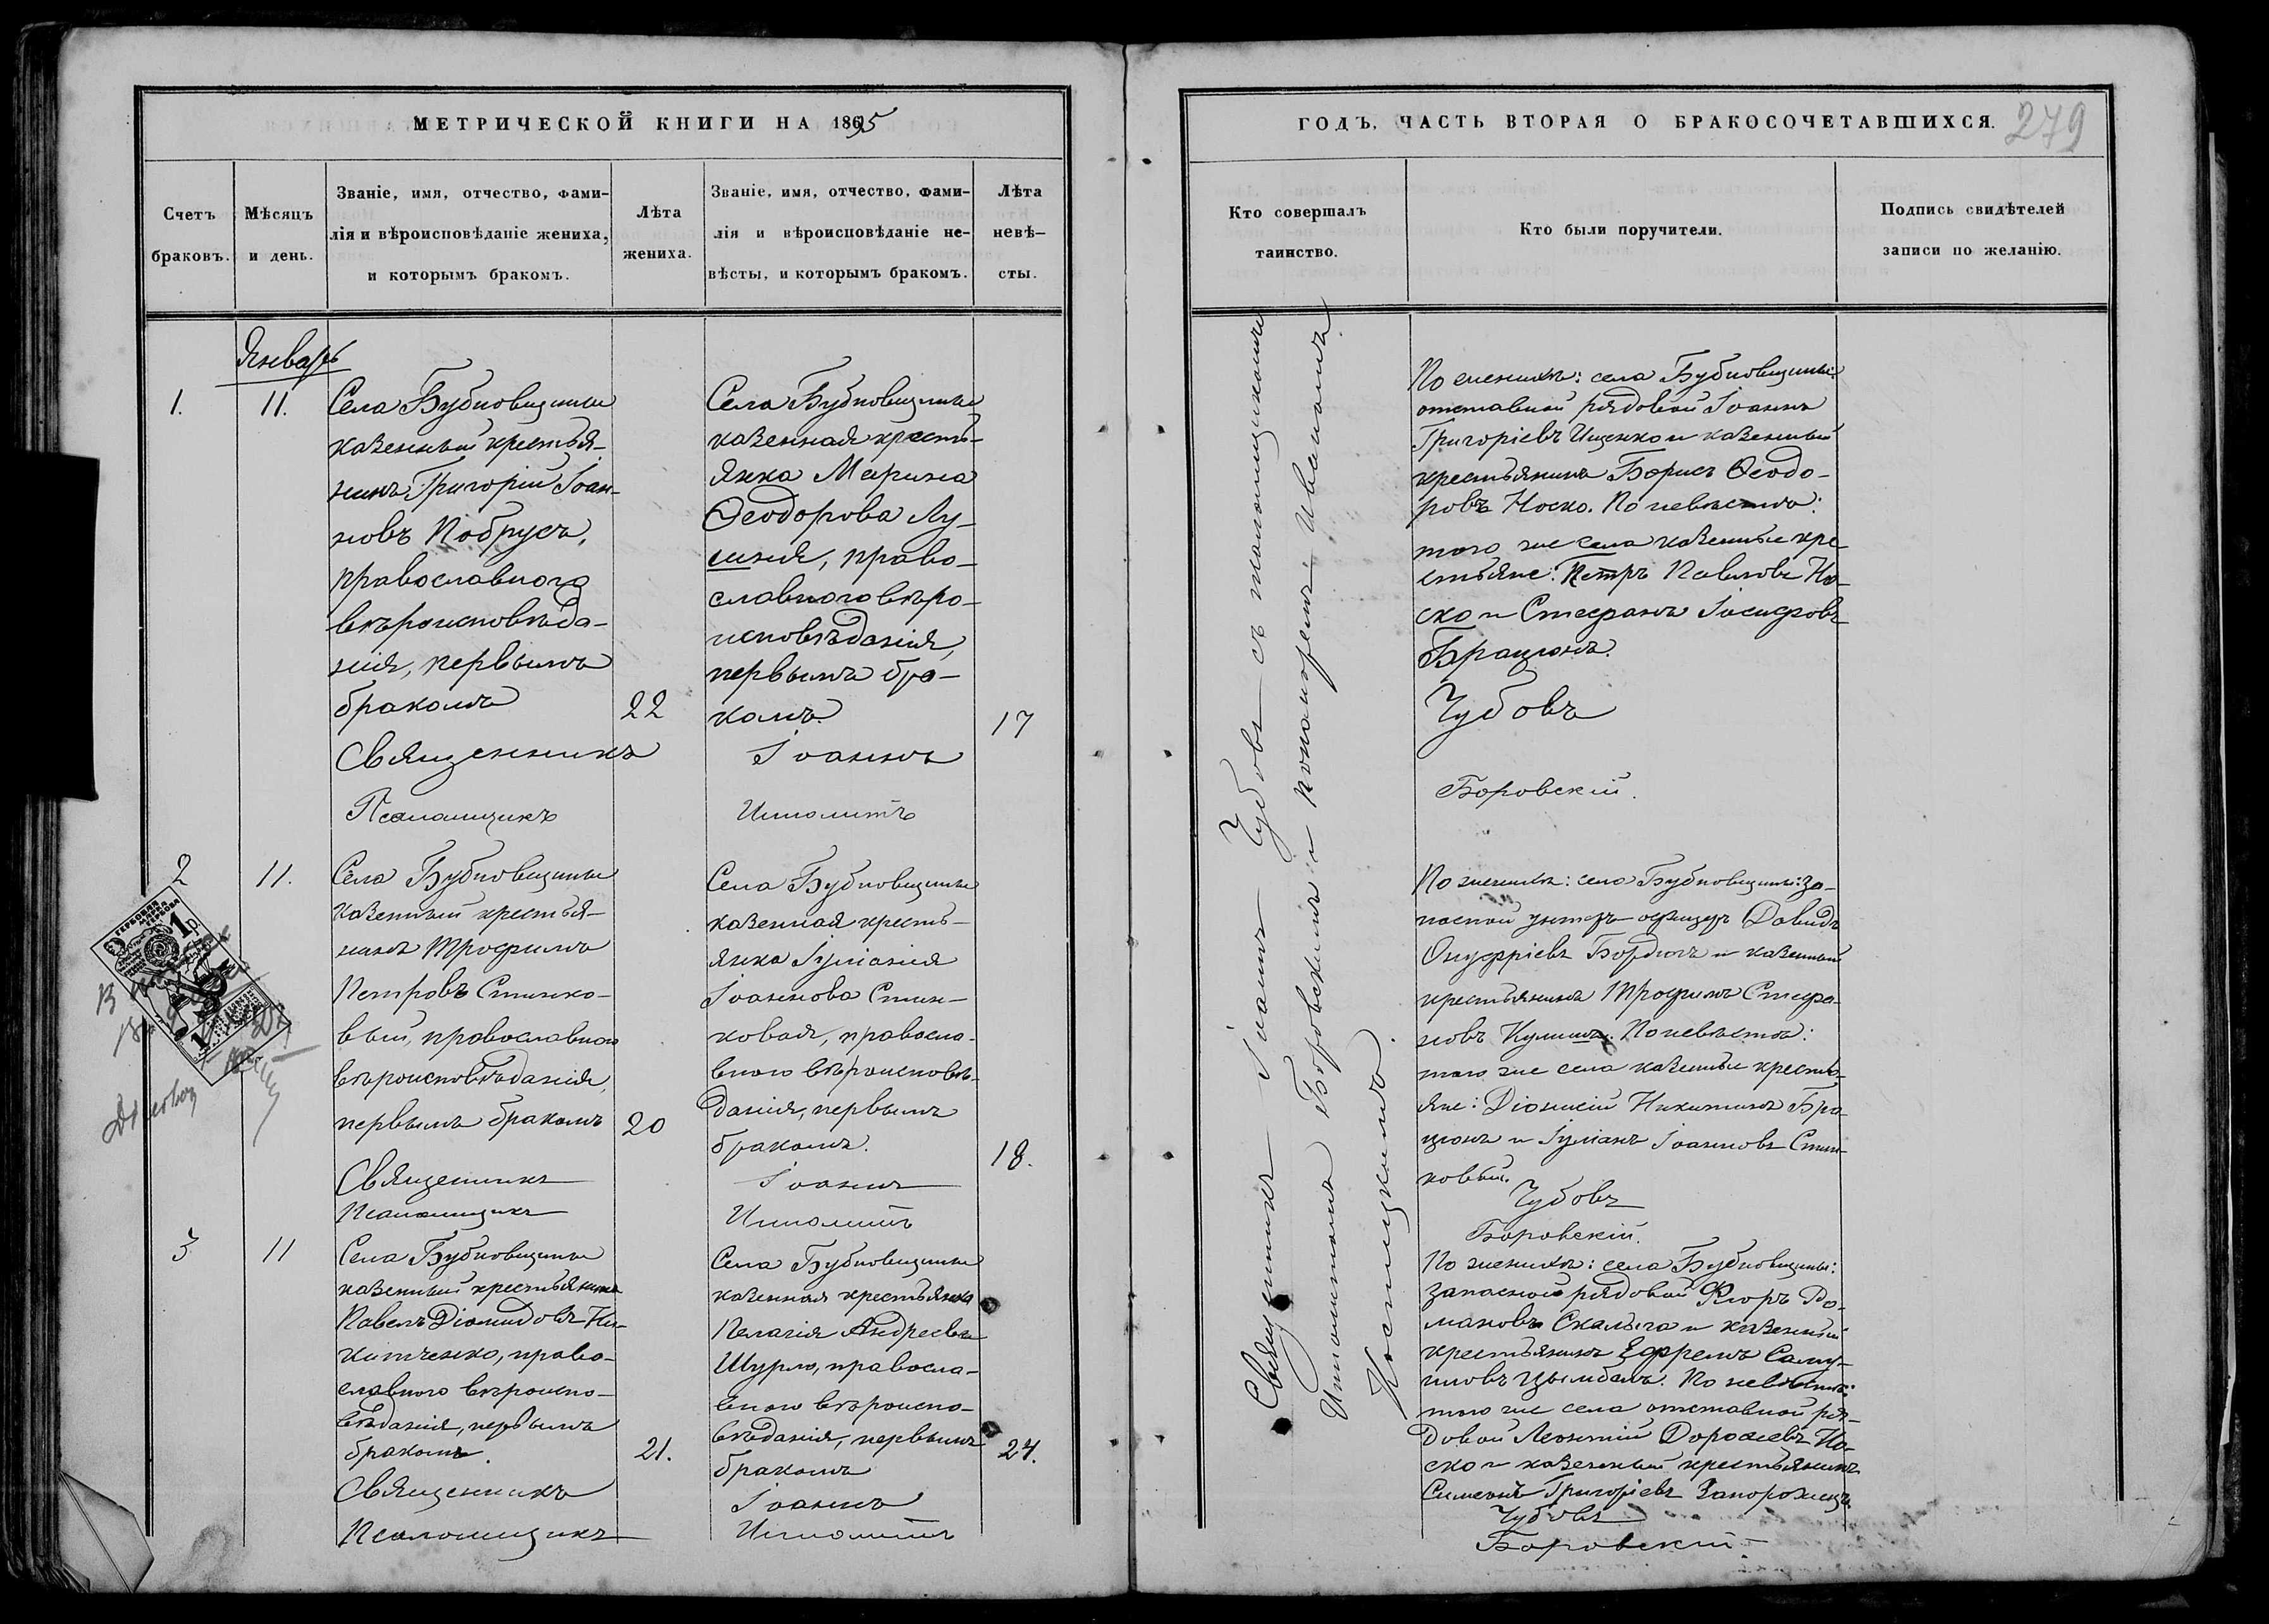 МЕТРИЧЕСКОЙ КНИГИ НА 1895
Счетъ браковъ.
Мѣсяцъ и день.
Званіе, имя, отчество, фами-
лія и вѣроисповѣданіе жениха,
и которымъ бракомъ.
Лѣта
жениха.
Званіе, имя, отчество, фами-
лія и вѣроисповѣданіе не-
вѣсты, и которымъ бракомъ.
Лѣта
невѣ-
сты.
Январь
1.
11.
Села Бубновщины
казенный крестья-
нинъ Григорій Іоан-
новъ Побрусъ,
православнаго
вѣроисповѣда-
нія, первымъ
бракомъ
22
Села Бубновщины
казенная кресть-
янка Марина
Ѳеодорова Лу-
шня, право-
славнаго вѣро-
исповѣданія,
первымъ бра-
комъ.
17
Священникъ Іоаннъ
Псаломщикъ Ипполитъ
2
11.
Села Бубновщины
казенный крестья-
нинъ Трофимъ
Петровъ Стинко-
вый, православнаго
вѣроисповѣданія,
первымъ бракомъ
20
Села Бубновщины
казенная кресть-
янка Іуліанія
Іоаннова Стин-
ковая, правосла-
внаго вѣроисповѣ-
данія, первымъ
бракомъ.
18.
Священникъ Іоаннъ
Псаломщикъ Ипполитъ
3
11
Села Бубновщины
казенный крестьянинъ
Павелъ Діомидовъ Ни-
китченко, право-
славнаго вѣроиспо-
вѣданія, первымъ
бракомъ.
21.
Села Бубновщины
казенная крестьянка
Пелагія Андреева
Шурло, правосла-
внаго вѣроиспо-
вѣданія, первымъ
бракомъ
24.
Священникъ Іоаннъ
Псаломщикъ Ипполитъ
ГЕРБОВАЯ МАРКА
1
ГОДЪ, ЧАСТЬ ВТОРАЯ О БРАКОСОЧЕТАВШИХСЯ.
279
Кто совершалъ
таинство.
Кто были поручители.
Подпись свидѣтелей
записи по желанію.
Священникъ Іоаннъ Чубовъ съ псаломщикомъ
Ипполитомъ Боровскимъ и пономаремъ Иваномъ
По женихѣ: села Бубновщины:
отставной рядовой Іоаннъ
Григоріевъ Ищенко и казенный
крестьянинъ Борисъ Ѳеодо-
ровъ Носко. По невѣстѣ:
того же села казенные кре-
стьяне: Петръ Павловъ Но-
ско и Стефанъ Іосифовъ
Брацюнъ.
Чубовъ
Боровскій.
По женихѣ: села Бубновщины: за-
пасной унтеръ-офицеръ Давидъ
Онуфріевъ Бордюгъ и казенный
крестьянинъ Трофимъ Стефа-
новъ Кулишъ. По невѣстѣ:
того же села казенные кресть-
яне: Діонисій Никитинъ Бра-
цюнъ и Іуліанъ Іоанновъ Стин-
ковый.
Чубовъ
Боровскій.
По женихѣ: села Бубновщины:
запасной рядовой Флоръ Ро-
мановъ Скалыга и казенный
крестьянинъ Ефремъ Саму-
иловъ Цымбалъ. По невѣстѣ:
того же села отставной ря-
довой Леонтій Дороѳеевъ Но-
ско и казенный крестьянинъ
Симеонъ Григоріевъ Запорожецъ
Чубовъ
Боровскій.